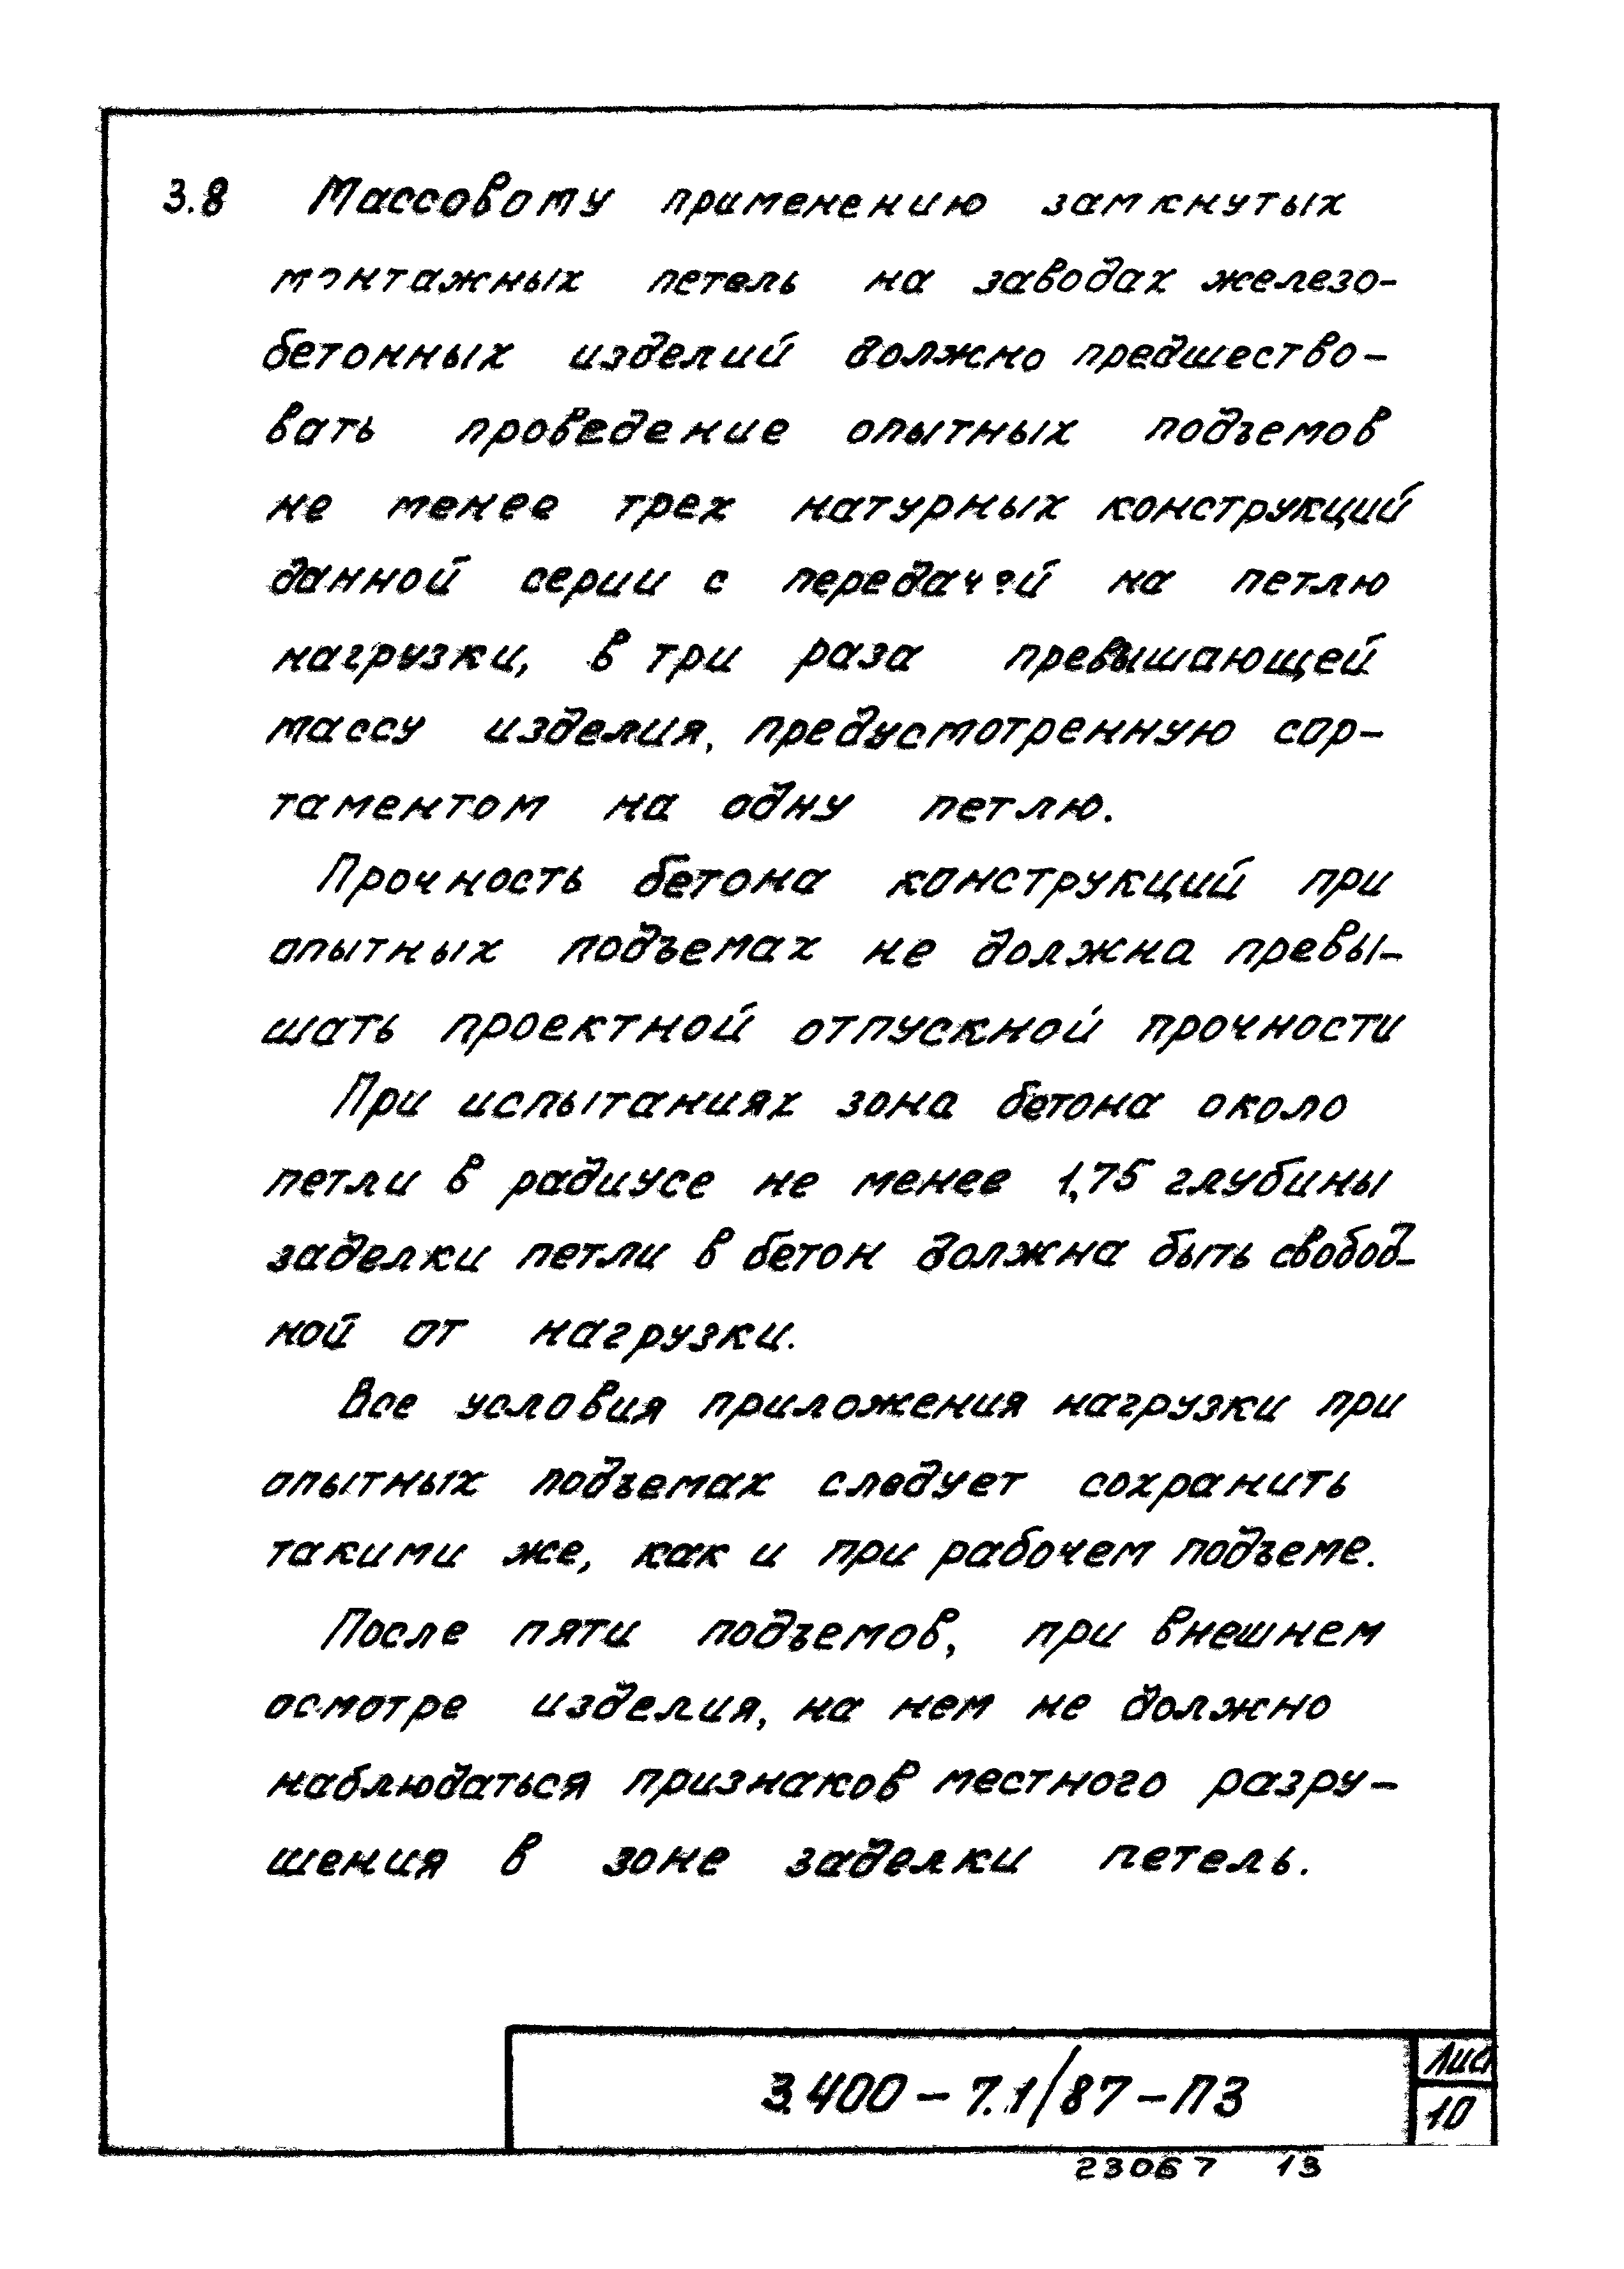 3.8 Массовому применению замкнутых
монтажных петель на заводах железо-
бетонных изделий должно предшество-
вать проведение опытных подъемов
не менее трех натурных конструкций
данной серии с передачей на петлю
нагрузки, в три раза превышающей
массу изделия, предусмотренную сор-
таментом на одну петлю.
Прочность бетона конструкций при
опытных подъемах не должна превы-
шать проектной отпускной прочности
При испытаниях зона бетона около
петли в радиусе не менее 1,75 глубины
заделки петли в бетон должна быть свобод-
ной от нагрузки.
Все условия приложения нагрузки при
опытных подъемах следует сохранить
такими же, как и при рабочем подъеме.
После пяти подъемов, при внешнем
осмотре изделия, на нем не должно
наблюдаться признаков местного разру-
шения в зоне заделки петель.
3.400-7.1/87-ПЗ
Лист
10
23067 13